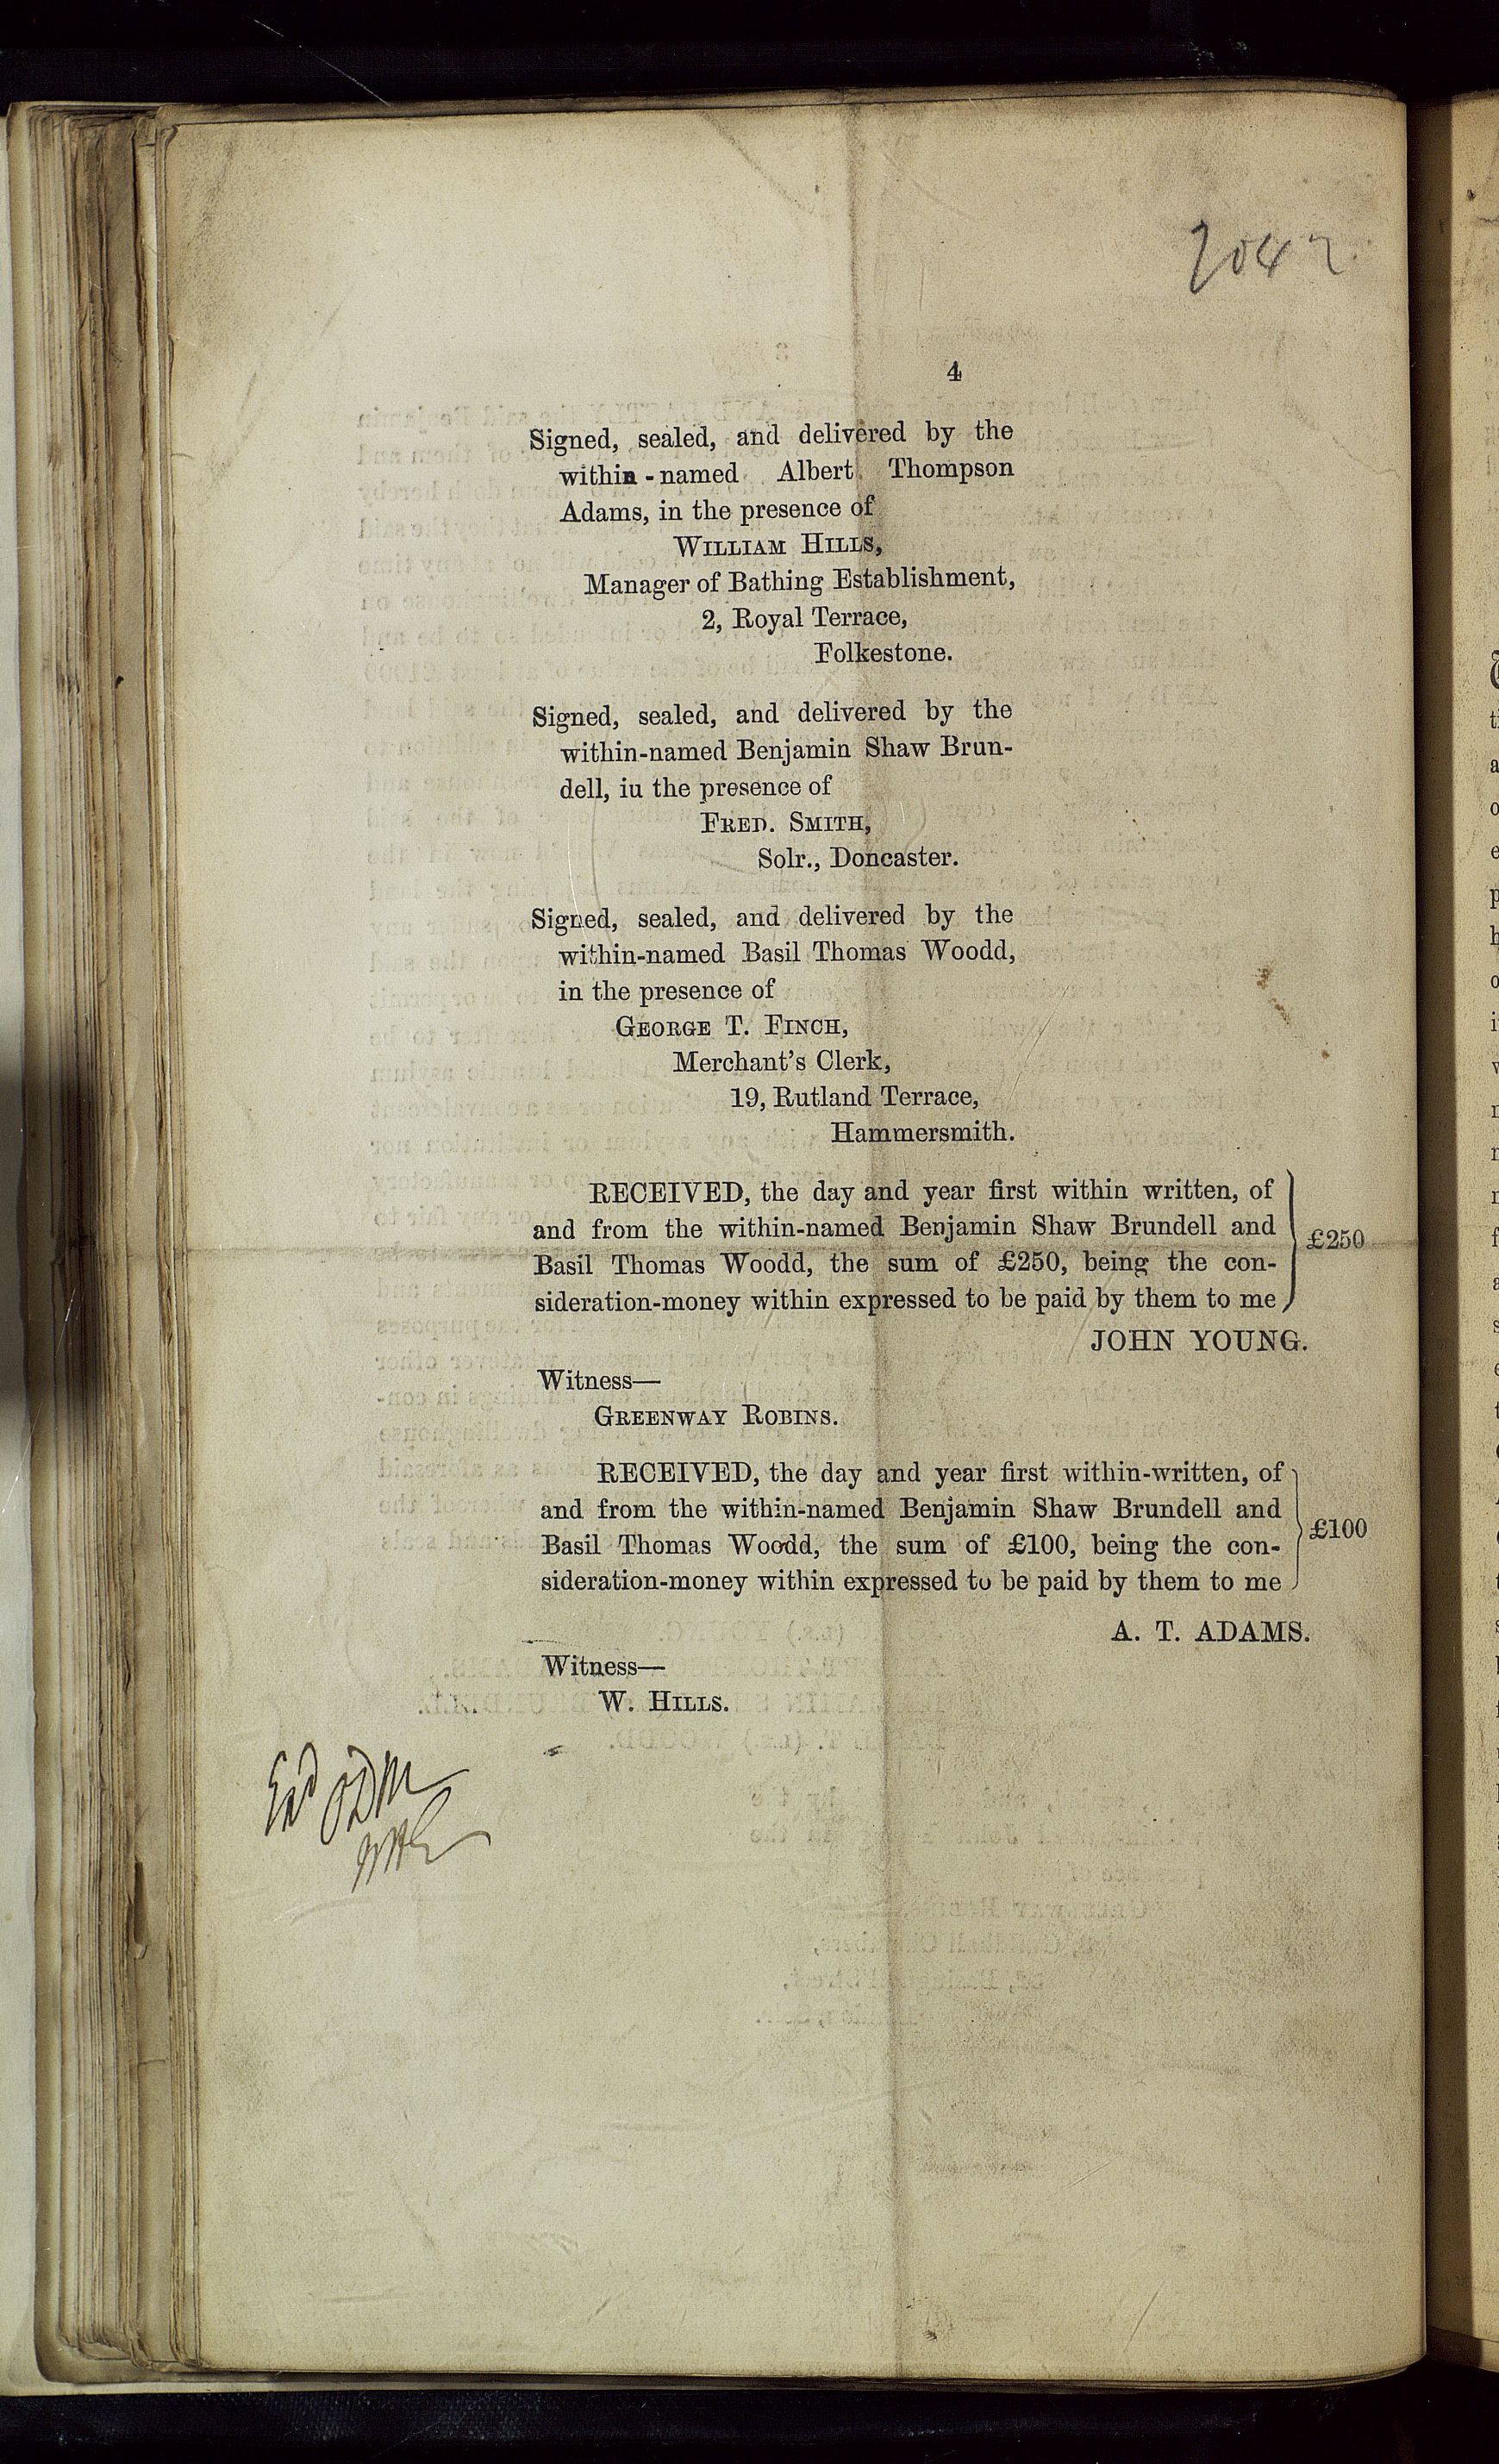 2042
4
Signed, sealed, and delivered by the
within-named Albert Thompson
Adams, in the presence of
WILLIAM HILLS,
Manager of Bathing Establishment,
2, Royal Terrace,
Folkestone.
Signed, sealed, and delivered by the
within-named Benjamin Shaw Brun-
dell, iu the presence of
FRED. SMITH,
Solr., Doncaster.
Signed, sealed, and delivered by the
within-named Basil Thomas Woodd,
in the presence of
GEORGE T. FINCH,
Merchant's Clerk,
19, Rutland Terrace,
Hammersmith.
RECEIVED, the day and year first within written, of
and from the within-named Benjamin Shaw Brundell and
Basil Thomas Woodd, the sum of £250, being the con-
sideration-money within expressed to be paid by them to me
£250
JOHN YOUNG.
Witness—
GREENWAY ROBINS.
RECEIVED, the day and year first within-written, of
and from the within-named Benjamin Shaw Brundell and
Basil Thomas Woodd, the sum of £100, being the con-
sideration-money within expressed to be paid by them to me
£100
A. T. ADAMS.
Witness—
W. HILLS.